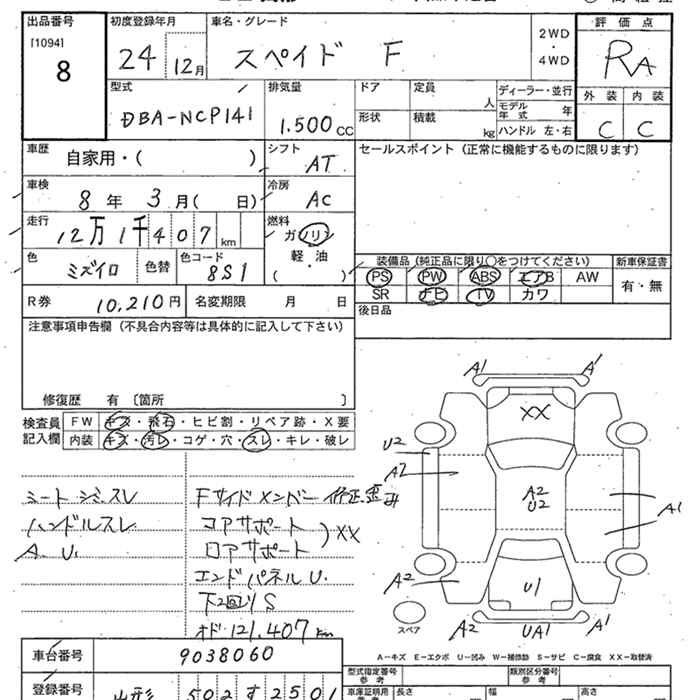 出品番号 初度登録年月 車名・グレード 2WD ・ 4WD 評価点
[1094] 8 24 12月 スペイド F RA
型式 排気量 ドア 定員 人 ディーラー・並行 外装 内装
DBA-NCP141 1.500cc 形状 積載 kg モデル年式 年 ハンドル 左・右 C C
車歴 自家用・( ) シフト AT セールスポイント(正常に機能するものに限ります)
車検 8年 3月( 日) 冷房 AC
走行 12万1千407km 燃料 ガソリン 軽・油 ( )
色 ミズイロ 色替 色コード 8S1
装備品(純正品に限り○をつけてください) 新車保証書
PS PW ABS エアB AW 有・無
SR ナビ TV カワ
R券 10,210円 名変期限 月 日 後日品
注意事項申告欄(不具合内容等は具体的に記入して下さい)
修復歴 有〔箇所 〕
検査員記入欄 FW キズ・飛石・ヒビ割・リペア跡・X要
内装 キズ・汚レ・コゲ・穴・スレ・キレ・破レ
シート シミスレ
ハンドルスレ
A. U.
Fサイドメンバー 修正歪み
コアサポート
ロアサポート
XX
エンドパネル U.
下回りS
オド 121,407km
A1 A1
XX
U2
A2
A2
U2
A1
A2
U1
スペア
A2 UA1 A1
A-キズ E-エクボ U-凹み W-補修跡 S-サビ C-腐食 XX-取替済
車台番号 9038060
型式指定番号 参考 類別区分番号 参考
登録番号 山形 502 す 2501
車庫証明用 参考 長さ 幅 高さ